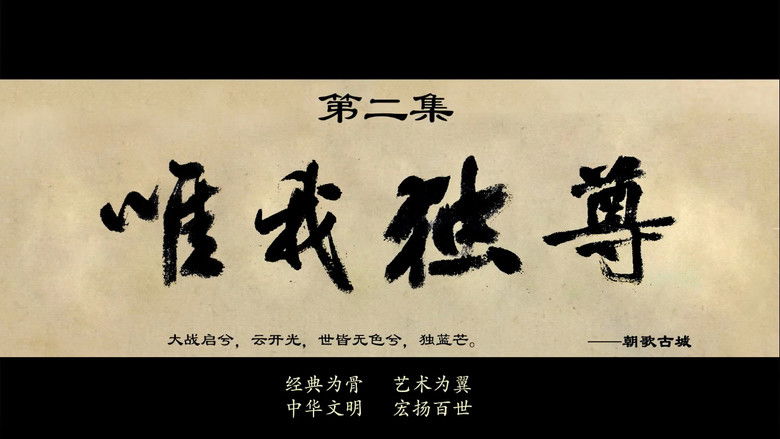 第二集
唯我独尊
大战启兮，云开光，世皆无色兮，独蓝芒。
——朝歌古城
经典为骨 艺术为翼
中华文明 宏扬百世